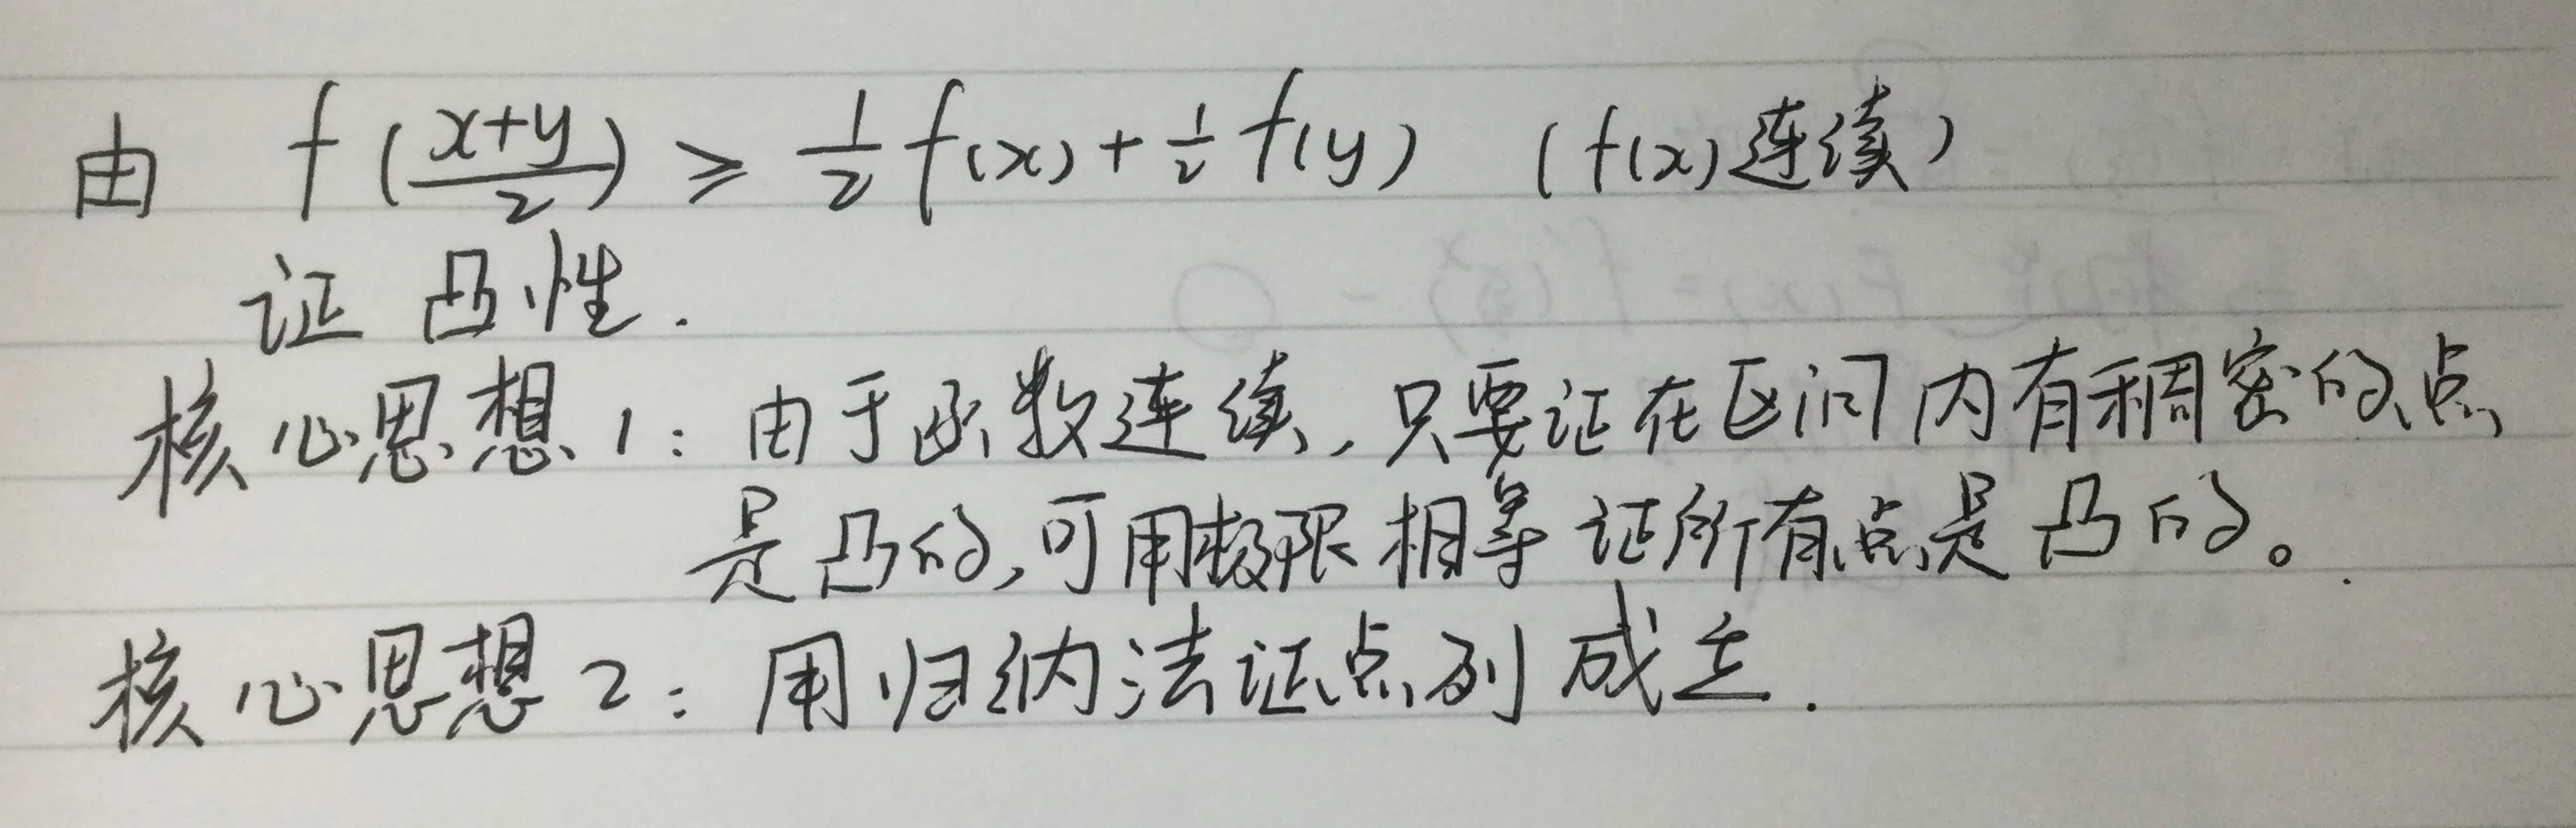 由 f(\frac{x+y}{2}) ≥ \frac{1}{2} f(x) + \frac{1}{2} f(y) (f(x)连续)
证 凸性.
核心思想1: 由于函数连续,只要证在区间内有稠密的点
是凸的,可用极限相等证所有点是凸的。
核心思想2: 用归纳法证点列成立.